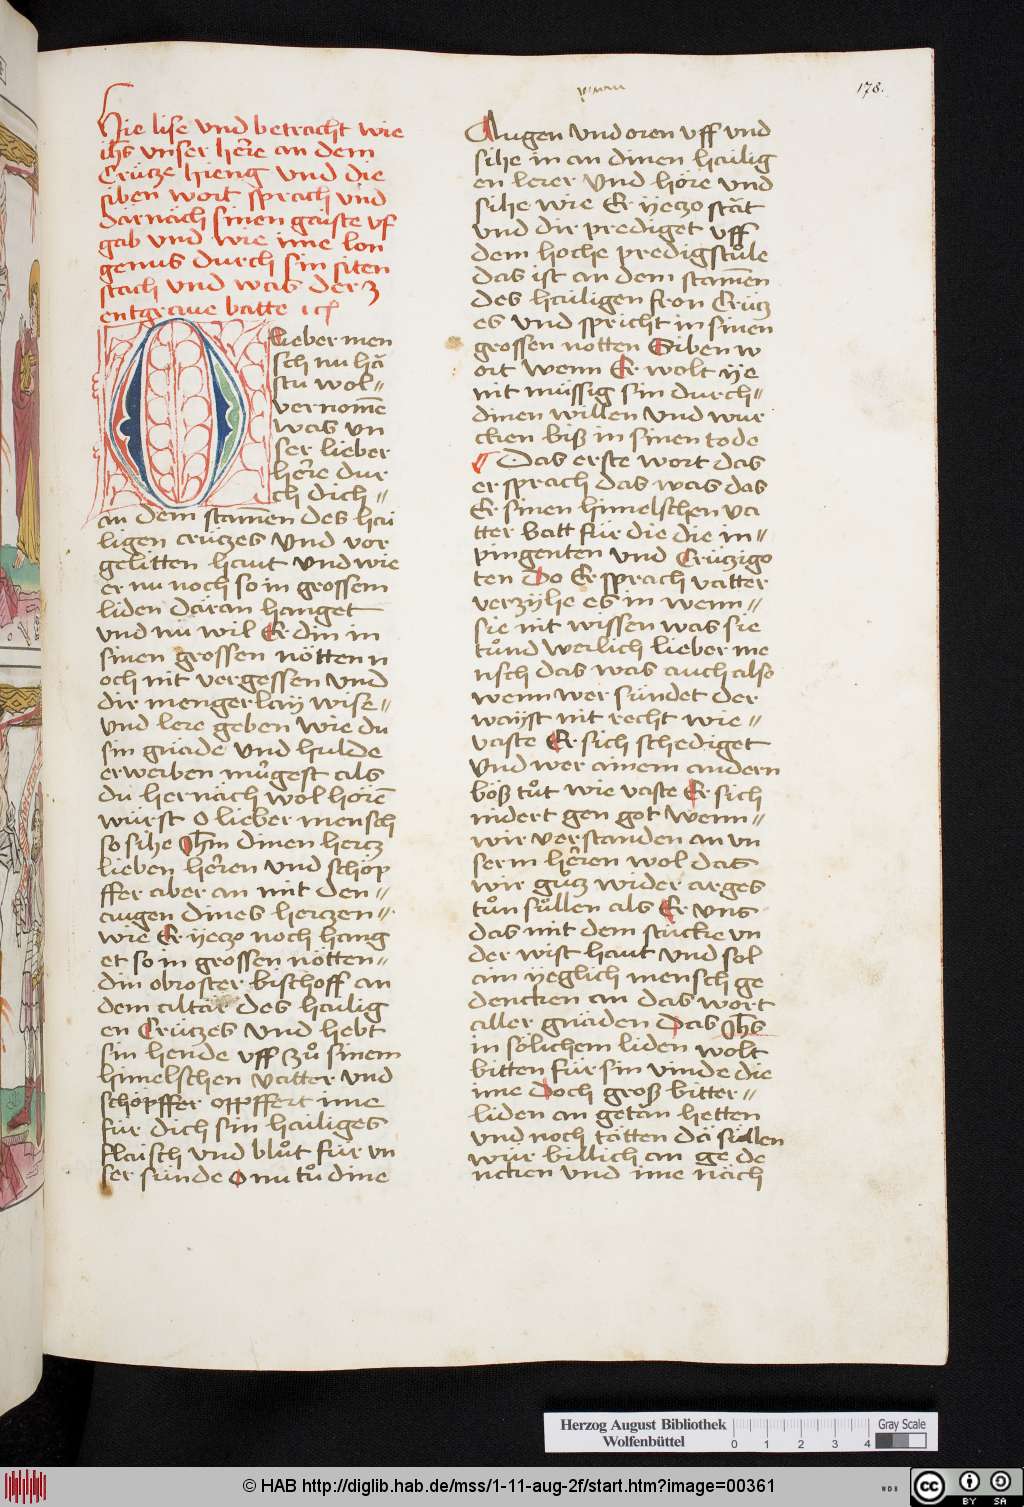 178.
Hie lise vnd betracht wie
ih̄s vnser her̄e an dem
Crütze hieng vnd die
siben wort sprach vnd
därnäch sinen gaiste vf
gab vnd wie ime lon
genus durch sin siten
stach vnd was der
entgraue hatte
O lieber men
sch nu hä
stu wol⸗
vernom̄e
was vn
ser lieber
her̄e dur
ch dich ⸗
an dem stam̄en des hai
ligen crützes vnd vor
gelitten haut vnd wie
er nu noch so in grossem
liden däran hanget
vnd nü wil Er din in
sinen grossen nötten n
och nit vergessen vnd
dir mengerlay wise⸗
vnd lere geben wie du
sin gnäde vnd hulde
erwerben mügest als
du hernäch wol hören̄
würst O lieber mensch
so sihe Ih̄m dinen hertz
lieben her̄en vnd schöp
ffer aber an mit den⸗
augen dines hertzen⸗
wie Er yeczo noch hang
et so in grossen nötten⸗
din obroster bischoff an
dem altär des hailig
en Crützes vnd hebt
sin hende vff zů sinem
himelschen vatter vnd
schöpffer opffert ime
für dich sin hailiges
flaisch vnd blůt für vn
ser sünde O nu tů dine
Augen vnd oren vff vnd
sihe in an dinen hailig
en lerer vnd höre vnd
sihe wie Er yeczo stät
vnd dir prediget vff
dem hoche predigstůle
das ist an dem stam̄en
des hailigen fron Crütz
es vnd spricht in sinen
grossen nötten Siben w
ort wenn Er wolt ye
nit müssig sin durch⸗
dinen willen vnd wur
cken biß in sinen tode
Das erste wort das
er sprach das was das
Er sinen himelschen va
tter batt für die die in⸗
pingenten vnd Crützigo
ten Do Er sprach vatter
verzyhe es in wenn⸗
sie nit wissen was sie
tůnd werlich lieber me
nsch das was auch also
wenn wer sündet der
wayst nit recht wie⸗
vaste Er sich schediget
vnd wer ainem andern
böß tůt wie vaste Er sich
nidert gen got wenn⸗
wir verstanden an vn
serm her̄en wol das
wir gůtz wider arges
tůn süllen als Er vns
das mit dem stücke vn
der wist haut vnd sol
ain yeglich mensch ge
dencken an das wort
aller gnäden das Ih̄s
in sölichem liden wolt
bitten für sin vinde die
ime doch groß bitter⸗
liden an getän hetten
vnd noch tätten dä süllen
wür billich an ge de
ncken vnd ime näch
Herzog August Bibliothek
Wolfenbüttel
0 1 2 3 4
Gray Scale
© HAB http://diglib.hab.de/mss/1-11-aug-2f/start.htm?image=00361
WDB
cc
BY SA